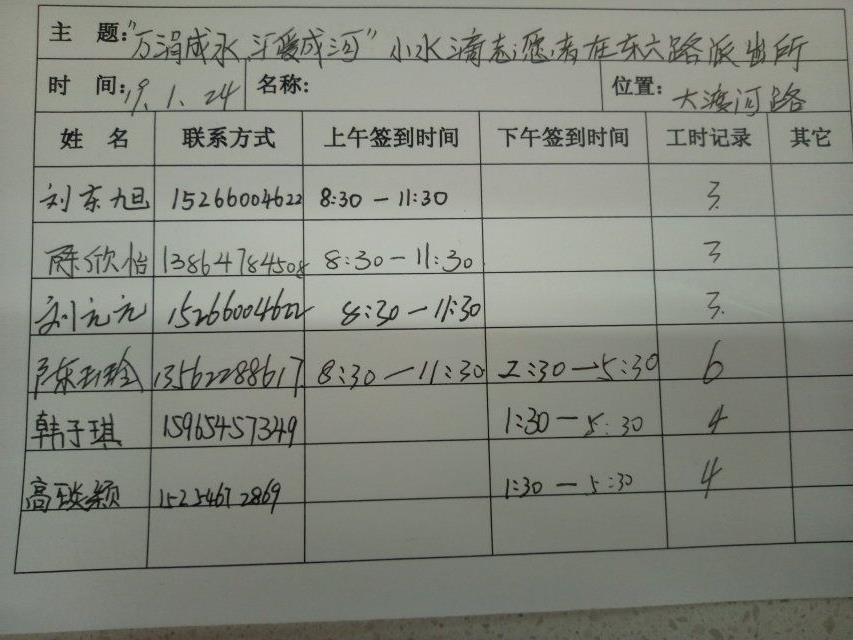 主 题:"万涓成水,汇爱成河"小水滴志愿者在东六路派出所
时 间:19.1.24 名称: 位置:大渡河路
姓 名 联系方式 上午签到时间 下午签到时间 工时记录 其它
刘东旭 15266004622 8:30-11:30 3
陈欣怡 13864784508 8:30-11:30 3
刘元元 15266004622 8:30-11:30 3
陈玉玲 13562288617 8:30-11:30 2:30-5:30 6
韩子琪 15965457349 1:30-5:30 4
高颖 15254672869 1:30-5:30 4